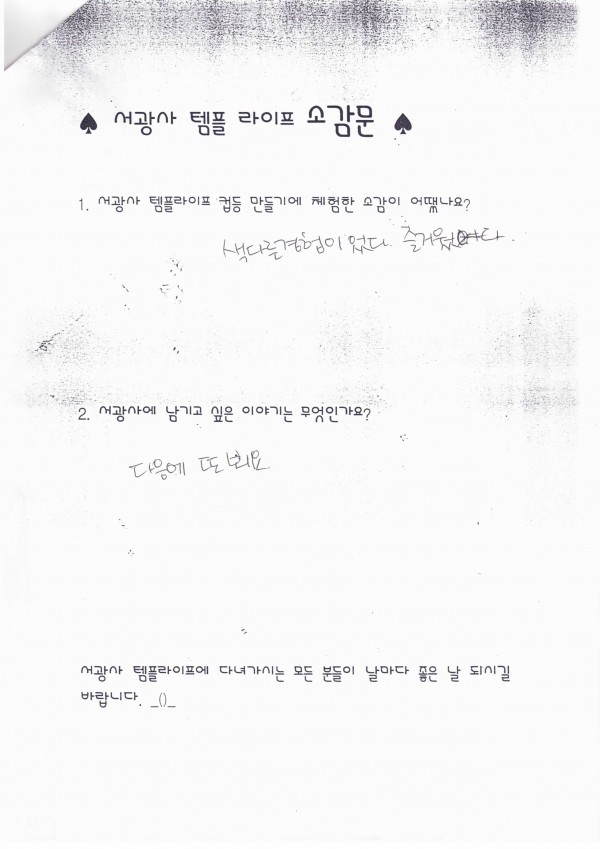 ♠ 서광사 템플 라이프 소감문 ♠
1. 서광사 템플라이프 컵등 만들기에 체험한 소감이 어땠나요?
색다른경험이 었다. 즐거웠다.
2. 서광사에 남기고 싶은 이야기는 무엇인가요?
다음에 또 뵈요
서광사 템플라이프에 다녀가시는 모든 분들이 날마다 좋은 날 되시길
바랍니다. _()_